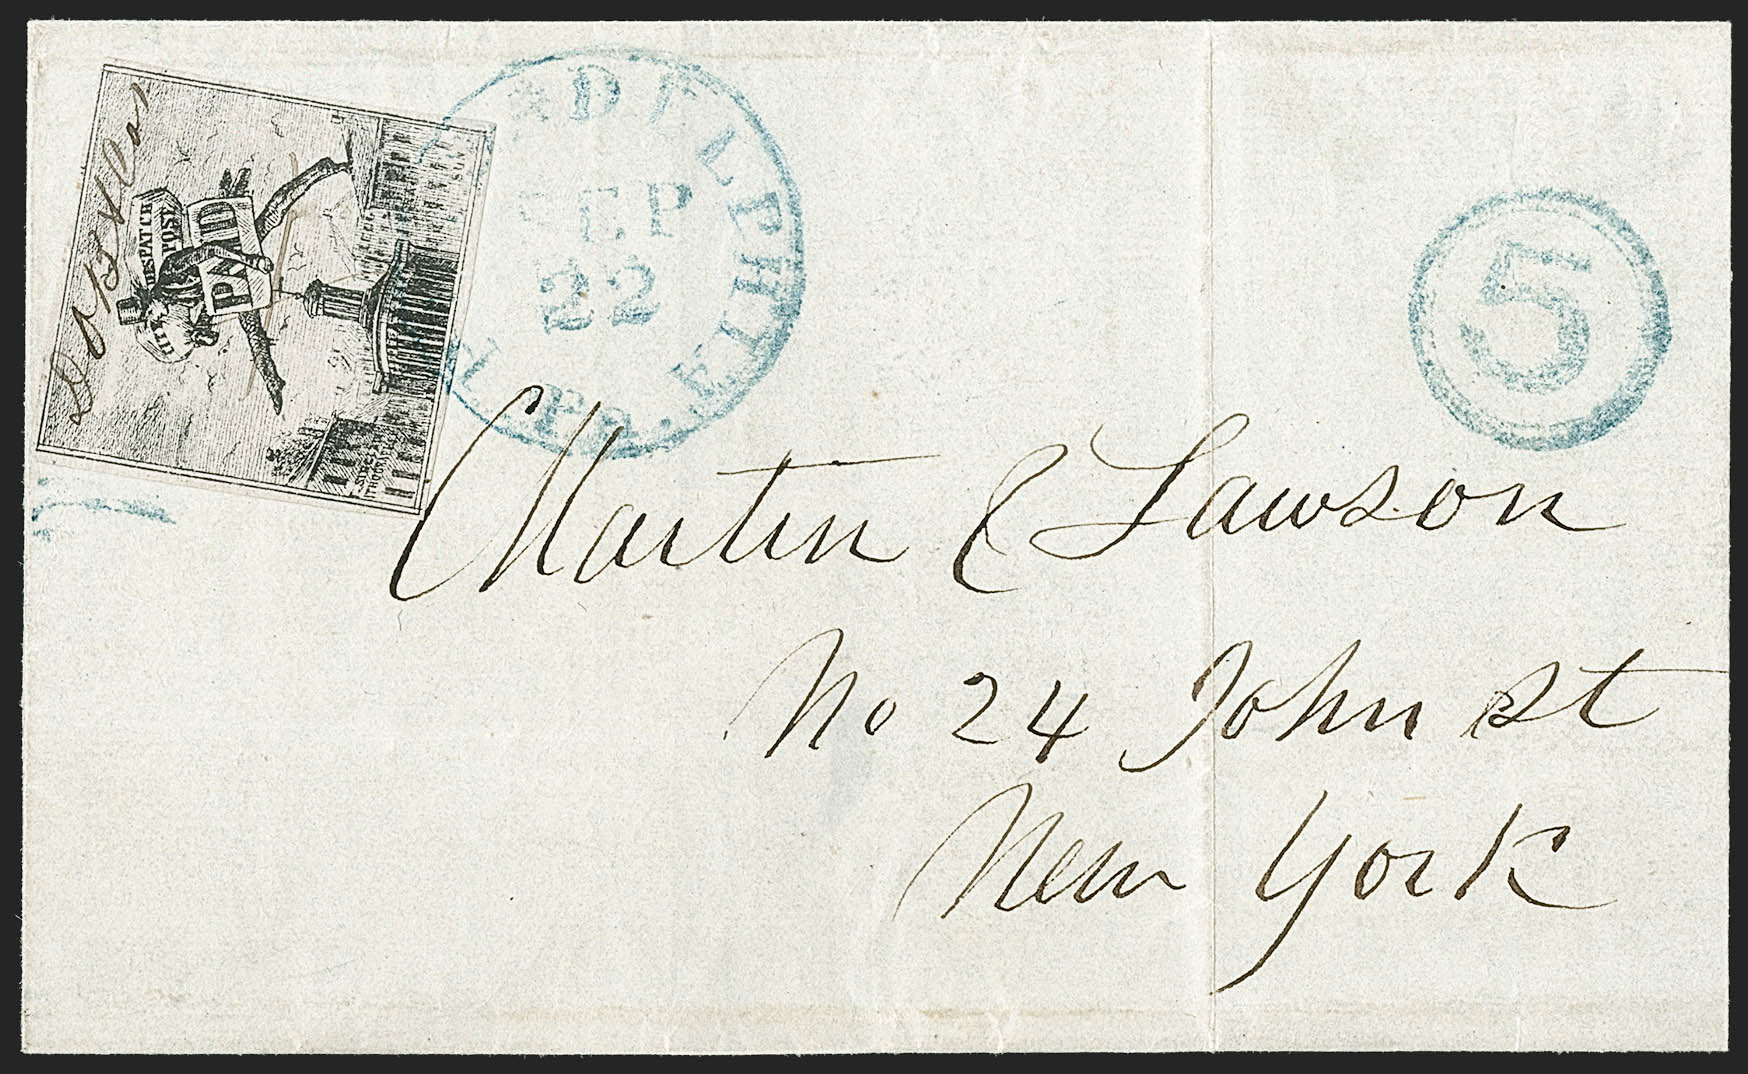 D.O.B. & Co.
DESPATCH
POST
PAID
PHILADELPHIA
Pa.
SEP
22
5
Martin & Lawson
No 24 John st
New York